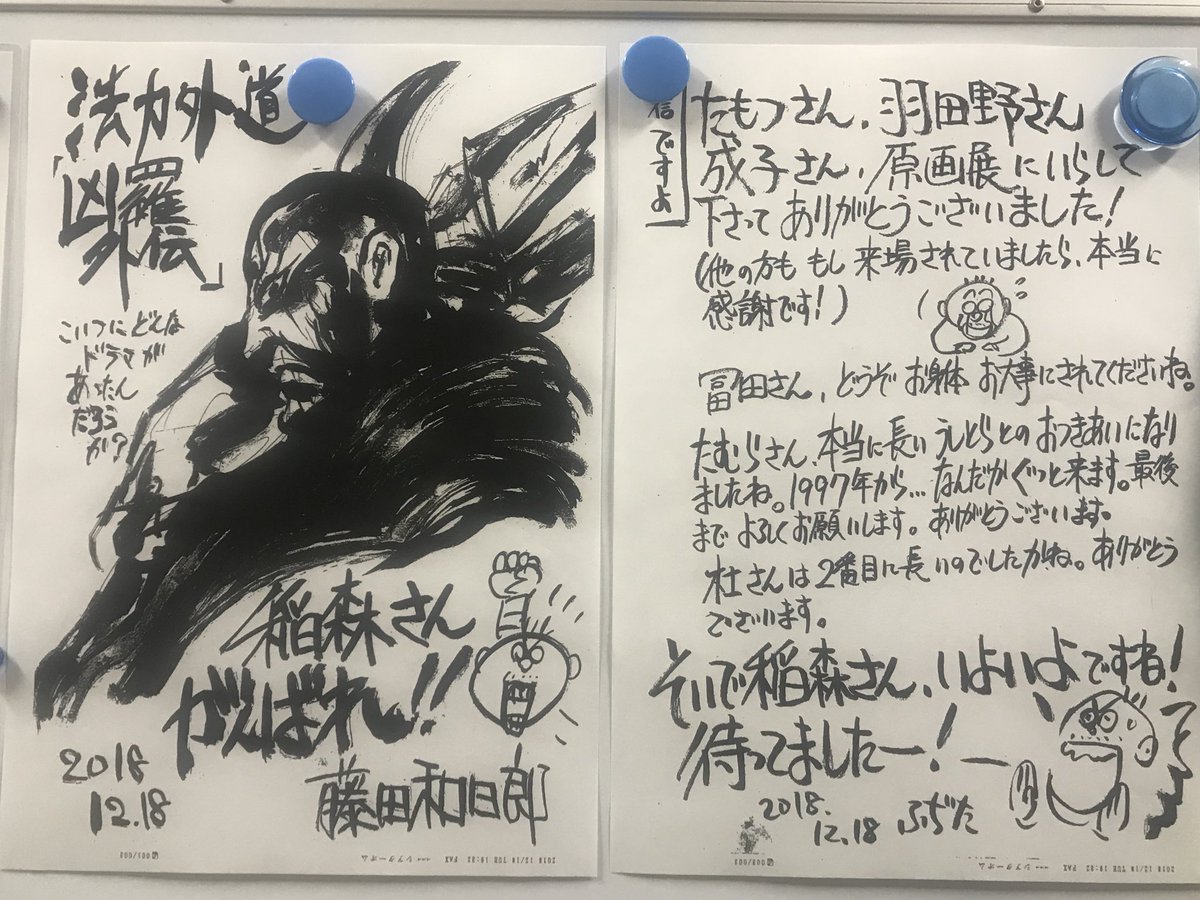 法力外道
「凶羅
外伝」
こいつにどんな
ドラマが
あったん
だろう
か?
稲森さん
がんばれ!!
2018
12.18
藤田和日郎
信ですよ
たもつさん、羽田野さん
成子さん、原画展にいらして
下さってありがとうございました!
(他の方も もし来場されていましたら、本当に
感謝です!)
冨田さん、どうぞお身体お大事にされてくださいね。
たむらさん、本当に長いうしとらとのおつきあいになり
ましたね。1997年から…なんだかぐっと来ます。最後
までよろしくお願いします。ありがとうございます。
杜さんは2番目に長いのでしたかね。ありがとう
ございます。
そいで稲森さん、いよいよですね!
待ってましたー!
2018.
12.18 ふぢた